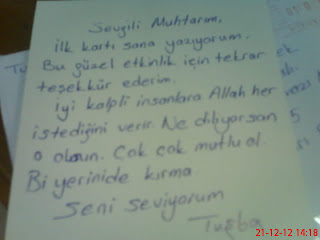 Sevgili Muhtarım,
İlk kartı sana yazıyorum.
Bu güzel etkinlik için tekrar
teşekkür ederim.
İyi kalpli insanlara Allah her
istediğini verir. Ne diliyorsan
o olsun. Çok çok mutlu ol
Bi yerinide kırma
Seni seviyorum
Tuğba
21-12-12 14:18